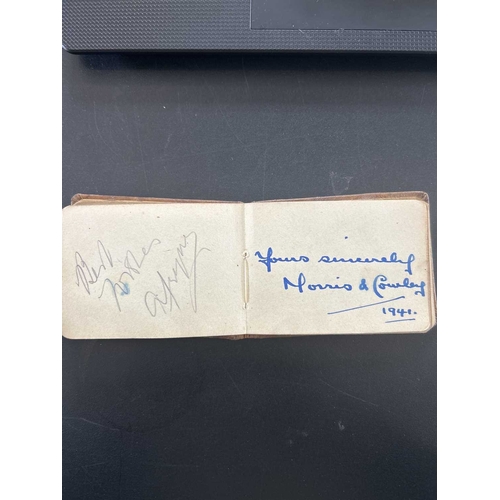 Best
Wishes
Yours sincerely
Morris & Cowley
1941.